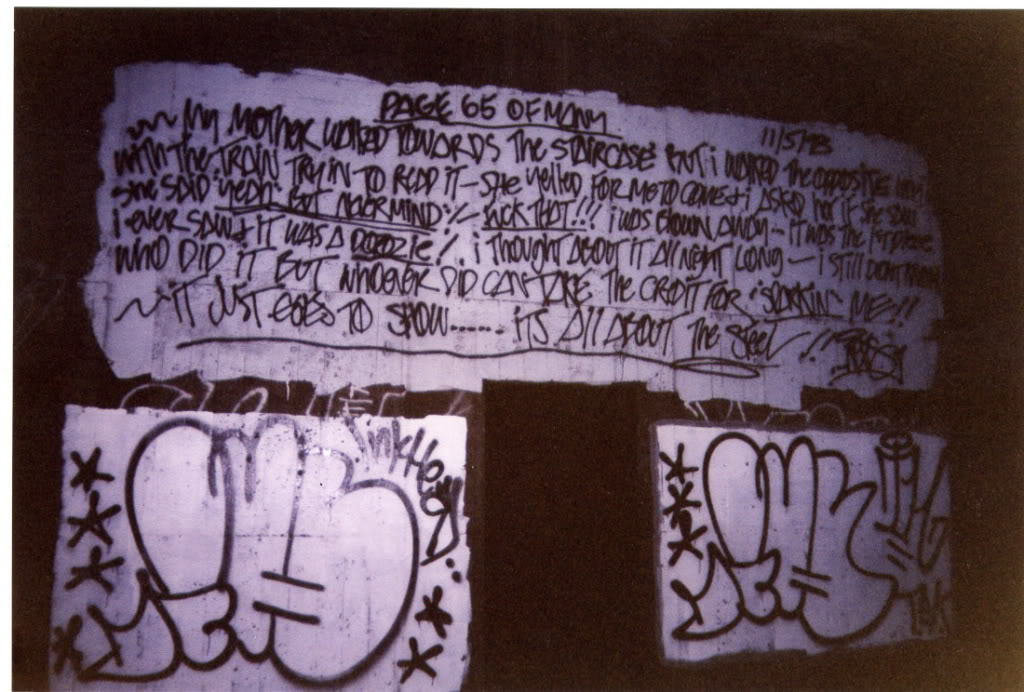 PAGE 65 OF MANY
11/5/93
My MOTHER WALKED TOWARDS THE STAIRCASE BUT i WALKED THE OPPOSITE WAY
WITH THE TRAIN TRYIN TO READ IT - SHE yelled FOR ME TO COME & i ASKED her iF SHE SAW
SHE SAID "yeAh" BUT NEVERMIND :/- FUCK THAT!!! i WAS BLOWN AWAY - IT WAS THE 1st PIECE
i EVER SAW & IT WAS A DOOZIE! i THOUGHT ABOUT IT All NIGHT LONG - i STill DON'T KNOW
WHO DID IT BUT WHOEVER DID CAN TAKE THE CREDIT FOR "SPARKIN" ME!!
IT JUST GOES TO SHOW..... ITS All ABOUT THE STEEL !!